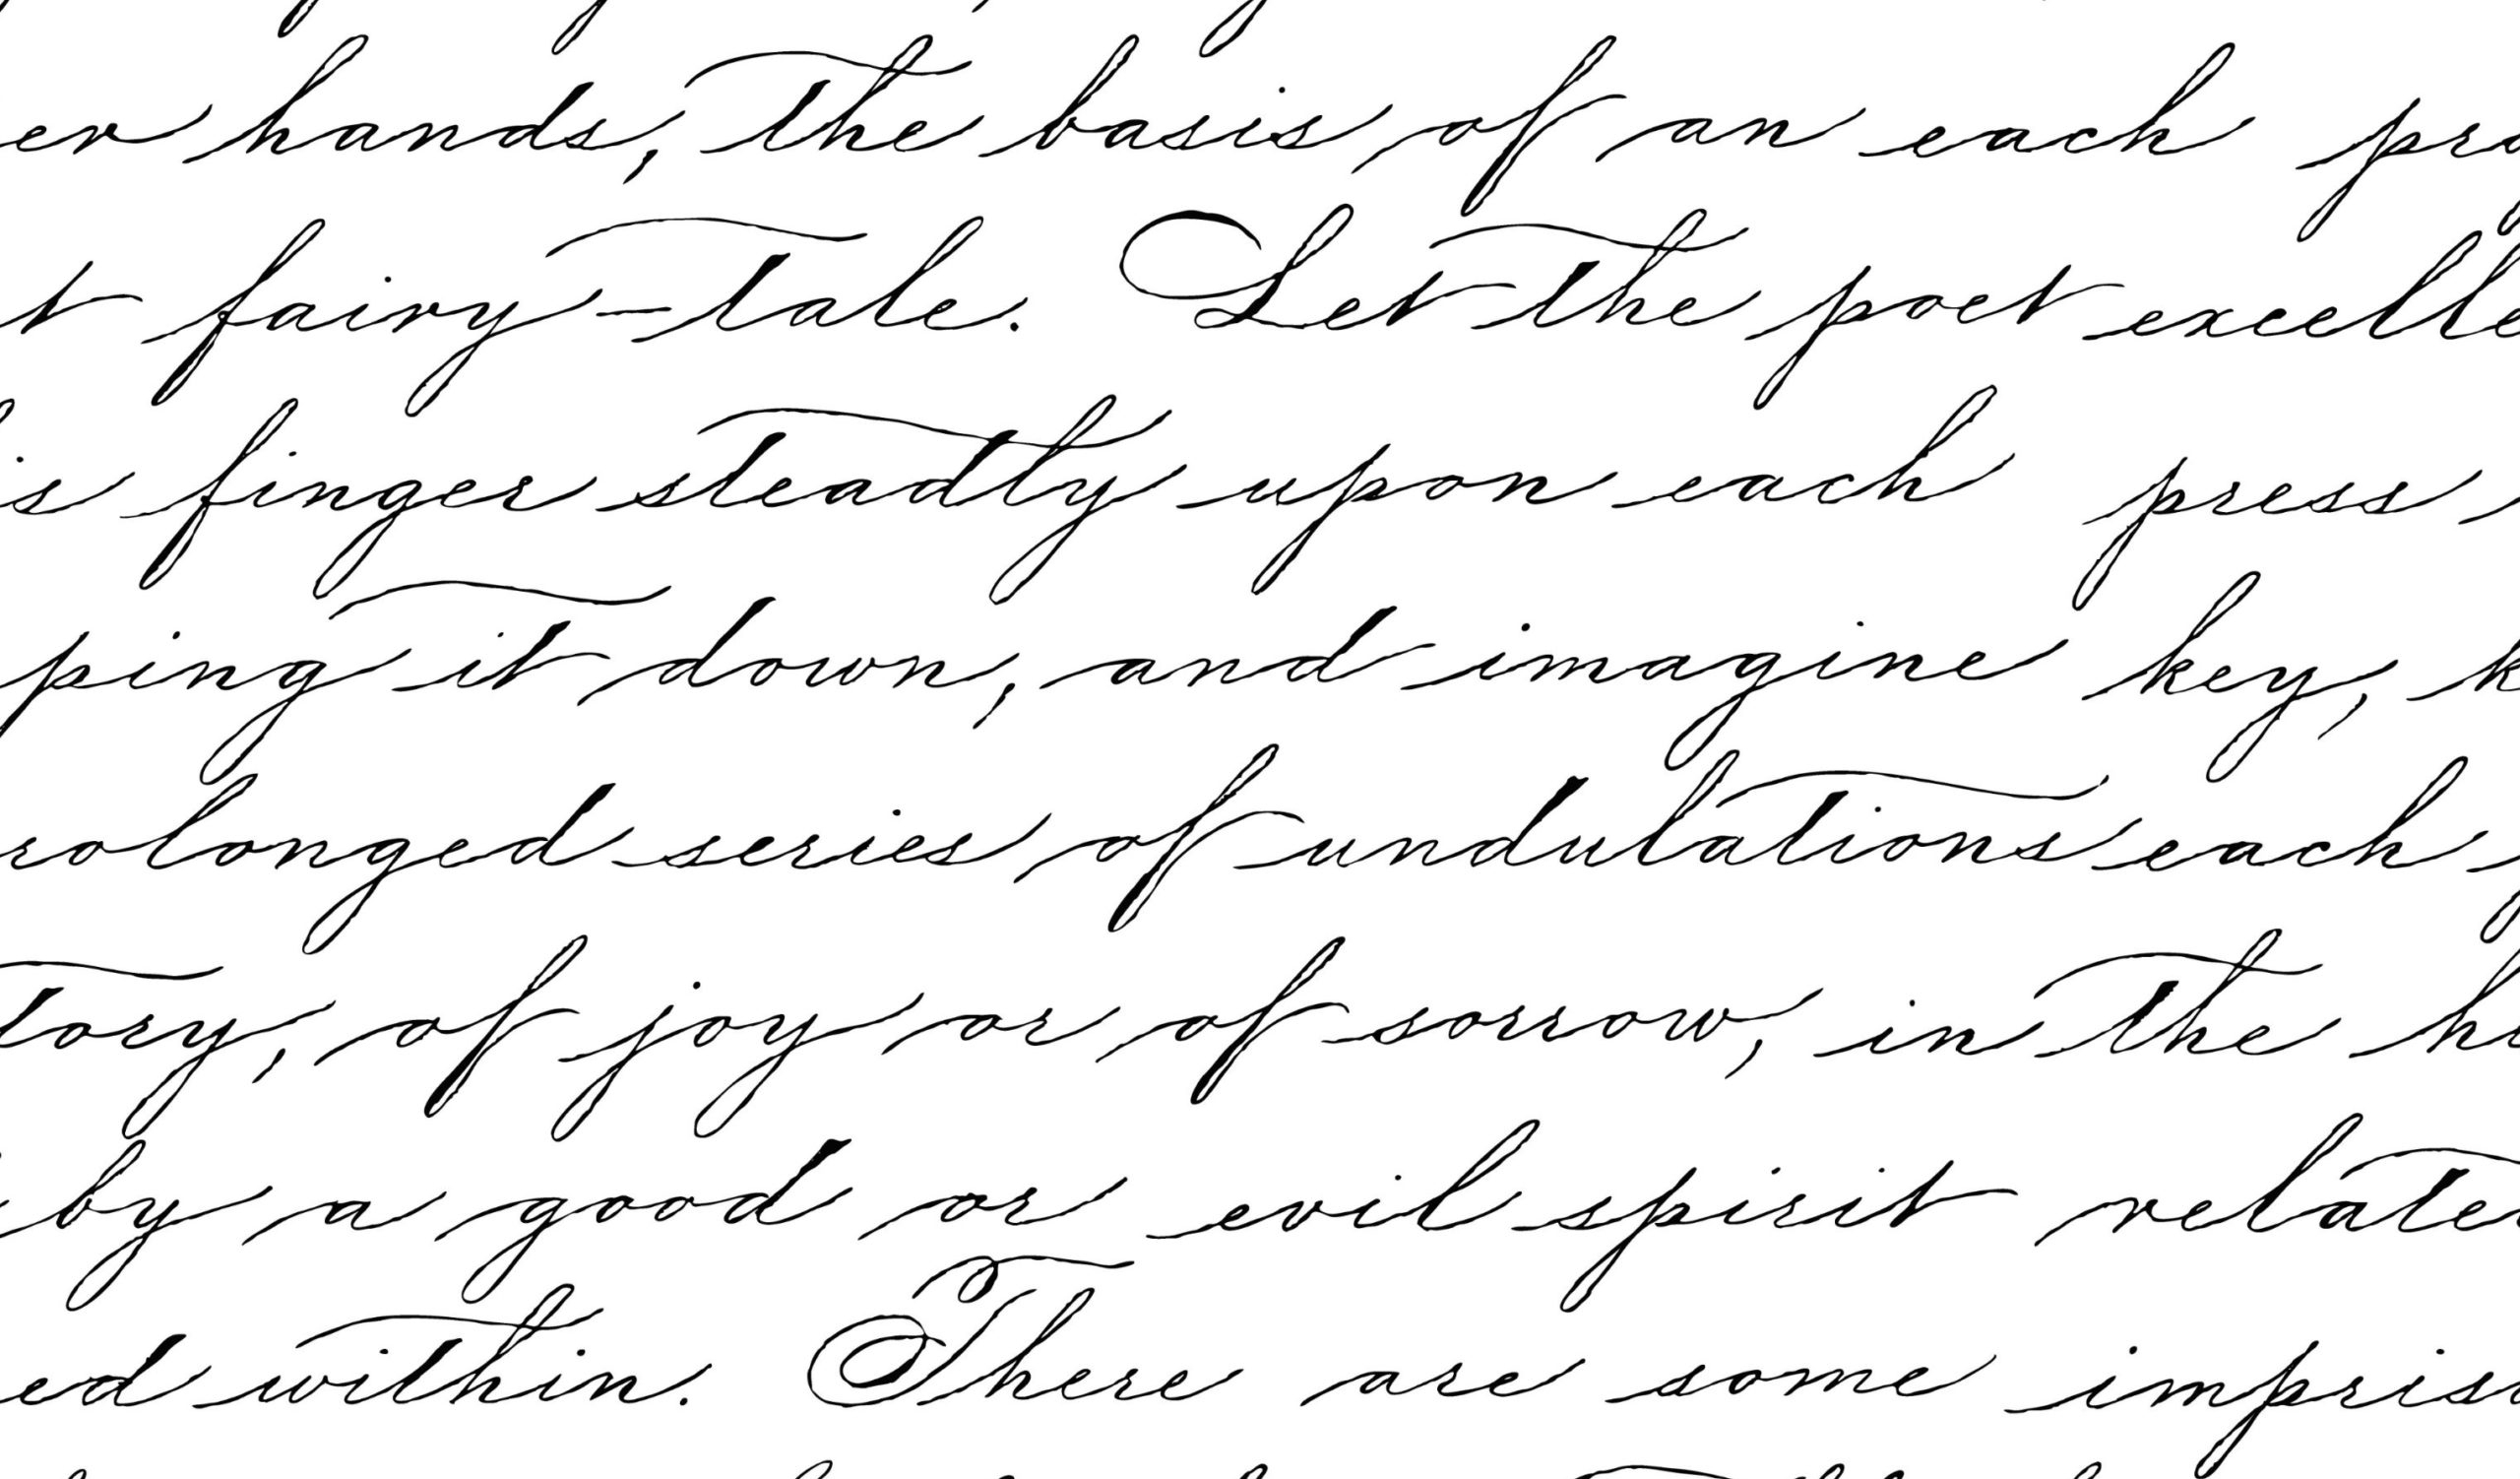 er hands, the basis of an each pro
t fairy-tale. Let the poet excelle
is finger steadtly upon each press
ping it down, and imagine key, k
rolonged series of undulations each
tory, of joy or of sorrow, in the h
by a good or evil spirit relate
ed within. There are some impris